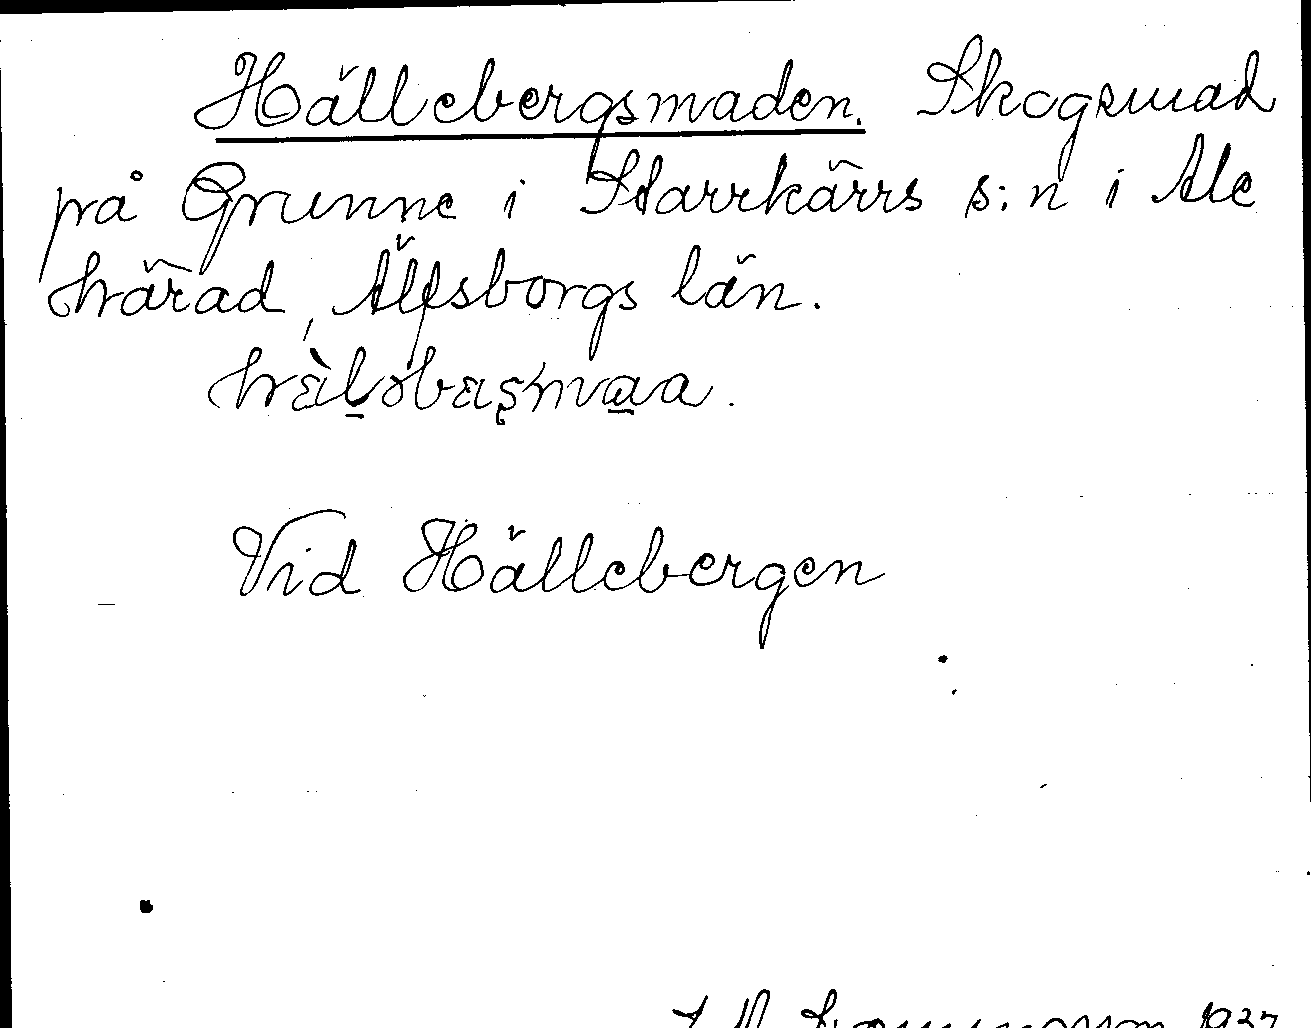 Hällebergsmaden. Skogsmad
på Grunne i Starrkärrs s:n i Ale
härad, Älfsborgs län.
Vid Hällebergen
1937